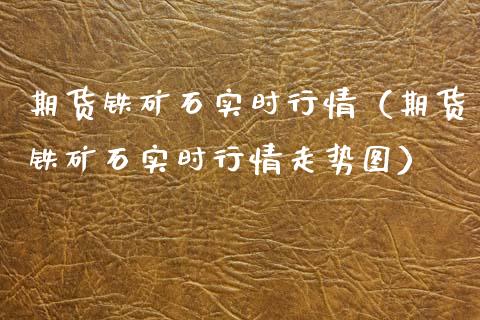 期货铁矿石实时行情（期货
铁矿石实时行情走势图）